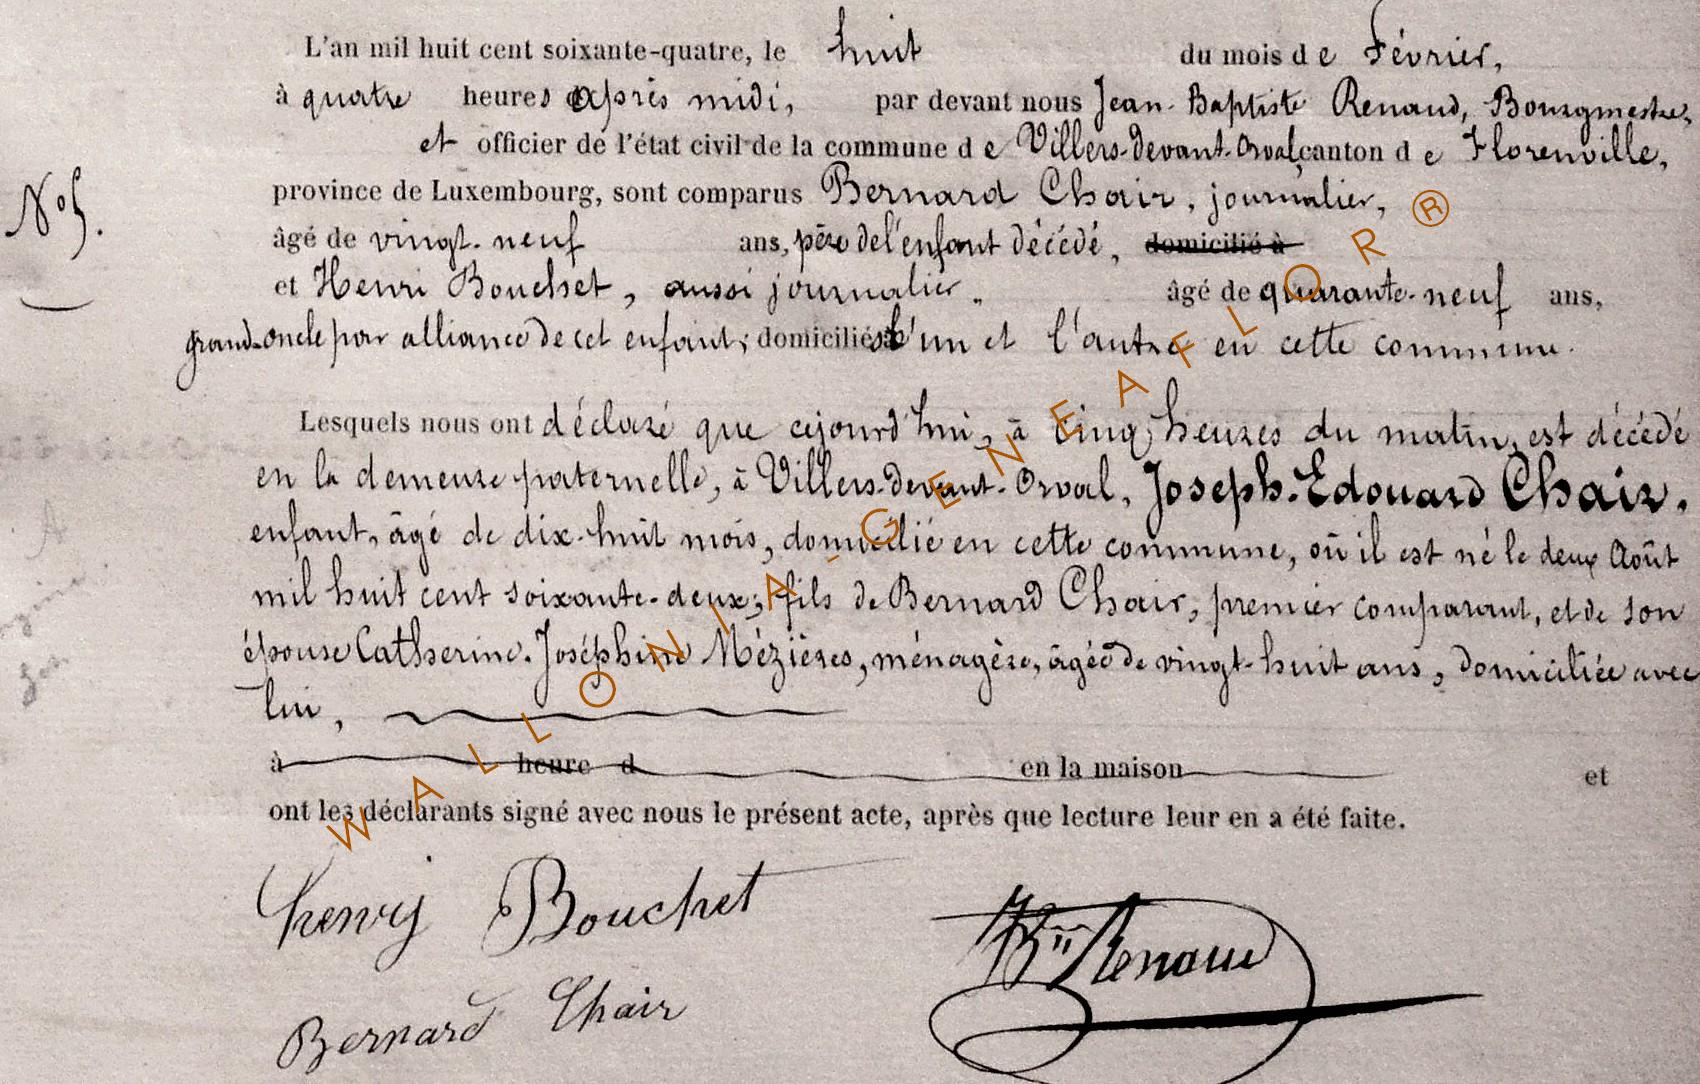 L'an mil huit cent soixante-quatre, le huit du mois de Février,
à quatre heures après midi, par devant nous Jean-Baptiste Renaud, Bourgmestre,
et officier de l'état civil de la commune de Villers-devant-Orval, canton de Florenville,
province de Luxembourg, sont comparus Bernard Chair, journalier,
N° 5.
âgé de vingt-neuf ans, père de l'enfant décédé, domicilié à
et Henri Bouchet, aussi journalier, âgé de quarante-neuf ans,
grand-oncle par alliance de cet enfant; domiciliés l'un et l'autre en cette commune.
Lesquels nous ont déclaré que cejourd'hui, à cinq heures du matin, est décédé
en la demeure paternelle, à Villers-devant-Orval, Joseph-Edouard Chair,
enfant, âgé de dix-huit mois, domicilié en cette commune, où il est né le deux Août
mil huit cent soixante-deux; fils de Bernard Chair, premier comparant, et de son
épouse Catherine-Joséphine Mézières, ménagère, âgée de vingt-huit ans, domiciliée avec
lui,
à heure d en la maison et
ont les déclarants signé avec nous le présent acte, après que lecture leur en a été faite.
henry Bouchet
Bernard Chair
Renaud
WALLONIA-GENEAFLOR®